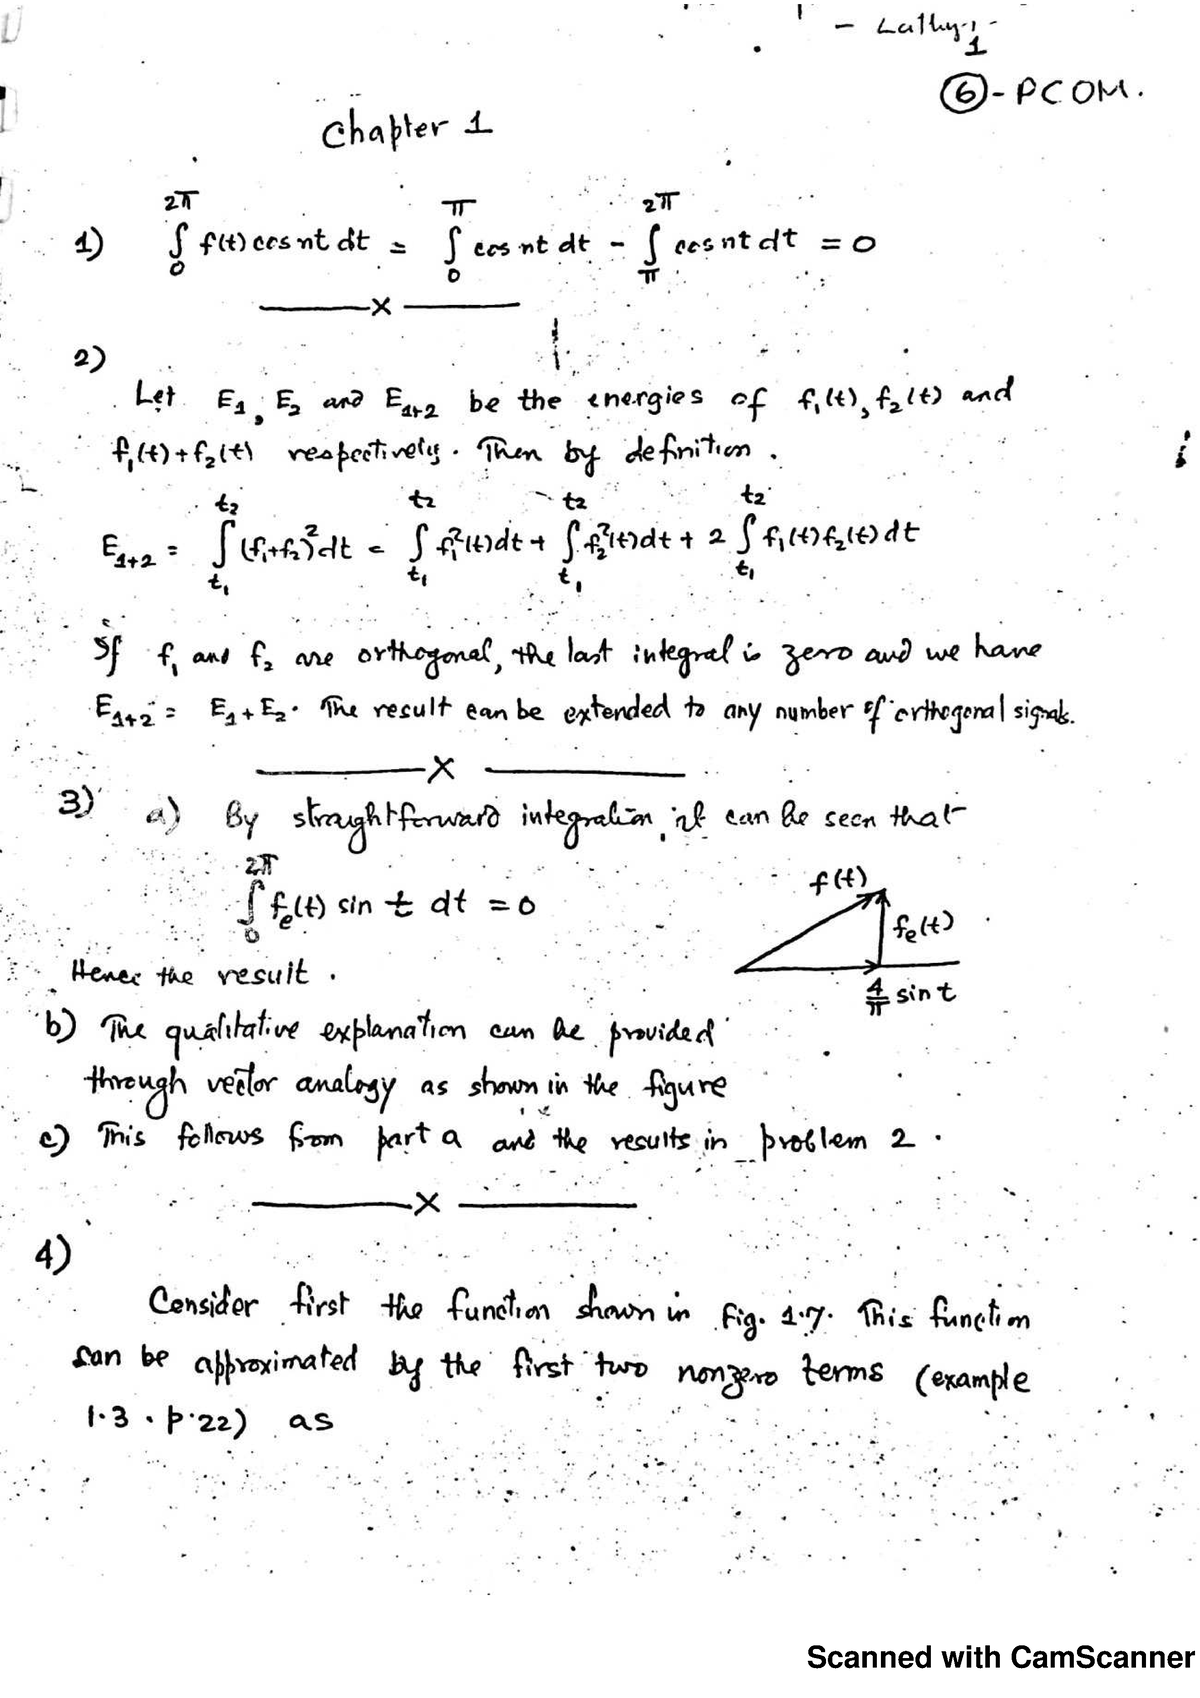 - Lathy
1
6 - PCOM.
Chapter 1
1) ∫₀^{2π} f(t) cos nt dt = ∫₀^{π} cos nt dt - ∫_{π}^{2π} cos nt dt = 0
x
2)
Let E₁, E₂ and E₁₊₂ be the energies of f₁(t), f₂(t) and
f₁(t)+f₂(t) respectively. Then by definition.
E₁₊₂ = ∫_{t₁}^{t₂} (f₁+f₂)² dt = ∫_{t₁}^{t₂} f₁²(t) dt + ∫_{t₁}^{t₂} f₂²(t) dt + 2 ∫_{t₁}^{t₂} f₁(t) f₂(t) dt
If f₁ and f₂ are orthogonal, the last integral is zero and we have
E₁₊₂ = E₁ + E₂. The result can be extended to any number of orthogonal signals.
x
3) a) By straightforward integration, it can be seen that
∫₀^{2π} fₑ(t) sin t dt = 0
f(t)
fₑ(t)
4/π sin t
Hence the result.
b) The qualitative explanation can be provided
through vector analogy as shown in the figure
c) This follows from part a and the results in problem 2.
x
4)
Consider first the function shown in Fig. 1.7. This function
can be approximated by the first two nonzero terms (example
1.3. p.22) as
Scanned with CamScanner